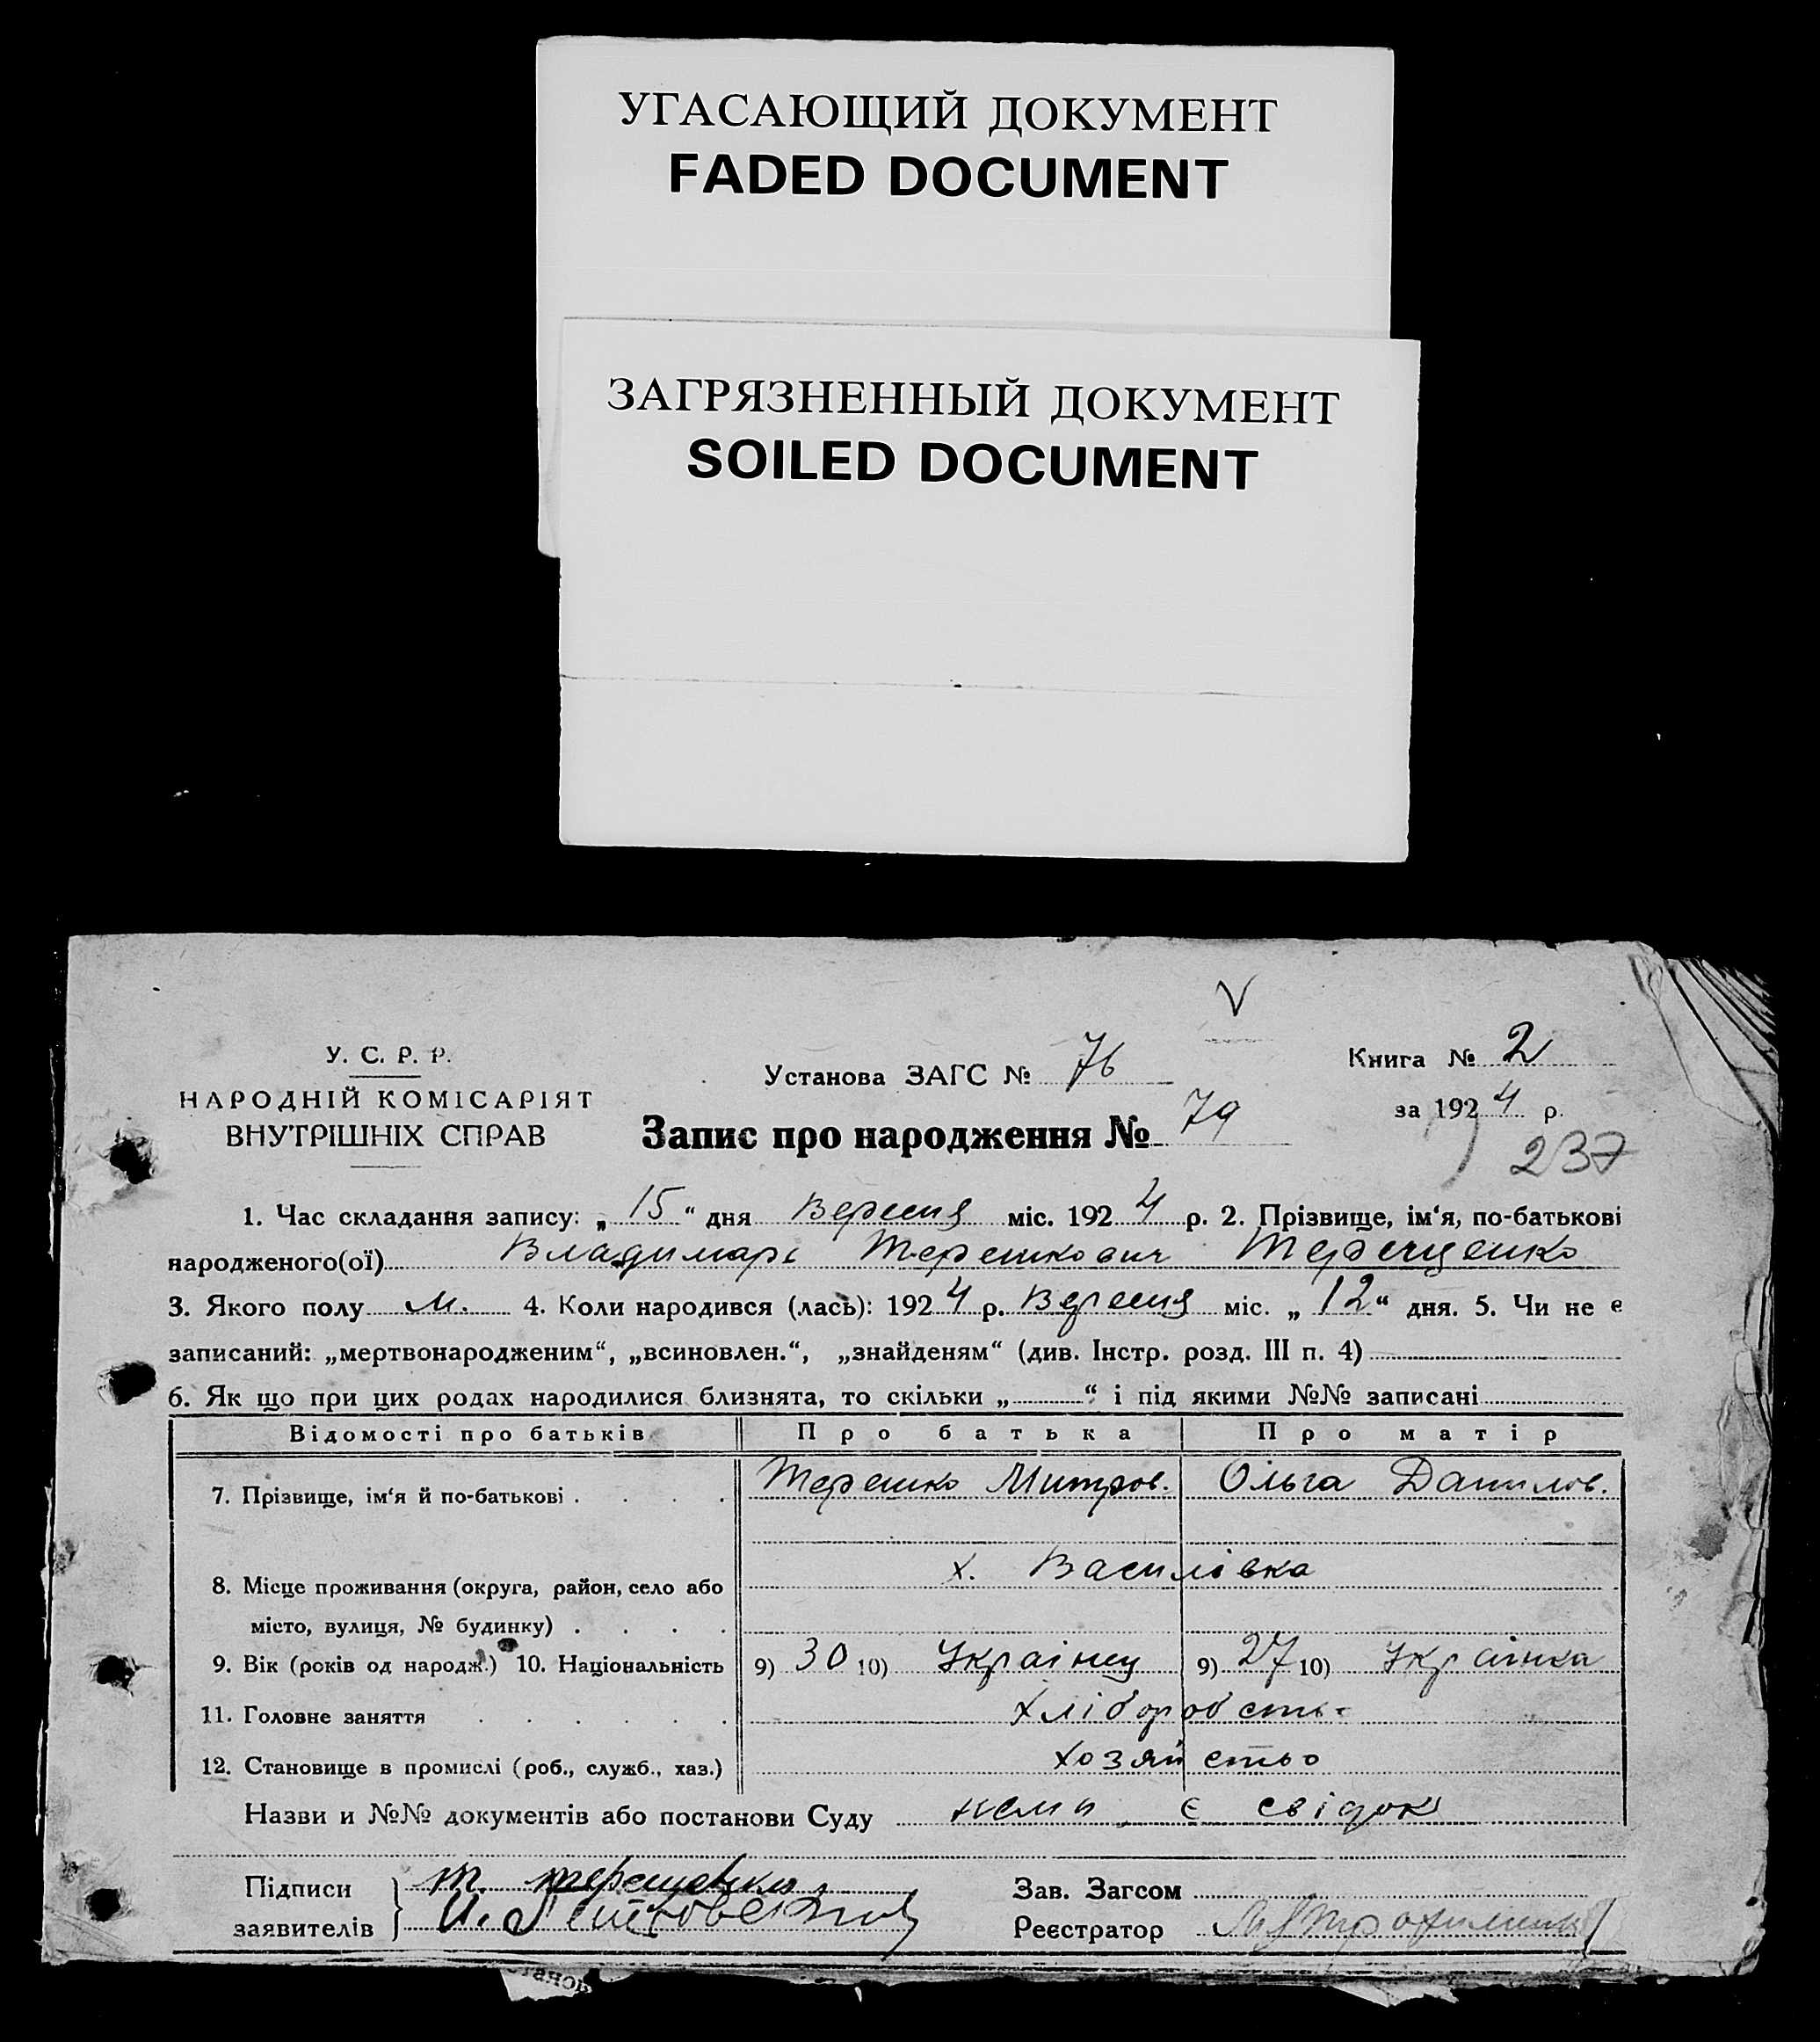 УГАСАЮЩИЙ ДОКУМЕНТ
FADED DOCUMENT
ЗАГРЯЗНЕННЫЙ ДОКУМЕНТ
SOILED DOCUMENT
V
У. С. Р. Р.
НАРОДНІЙ КОМІСАРІЯТ
ВНУТРІШНІХ СПРАВ
Установа ЗАГС № 76
Книга № 2
за 1924 р.
Запис про народження № 79
237
1. Час складання запису: „15“ дня Вересня міс. 1924 р. 2. Прізвище, ім‘я, по-батькові
народженого(ої) Владимарь Терешкович Терещенко
3. Якого полу м. 4. Коли народився (лась): 1924 р. Вересня міс. „12“ дня. 5. Чи не є
записаний: „мертвонародженим“, „всиновлен.“, „знайденям“ (див. Інстр. розд. III п. 4)
6. Як що при цих родах народилися близнята, то скільки „ “ і під якими №№ записані
Відомості про батьків Про батька Про матір
7. Прізвище, ім‘я й по-батькові Терешко Митров. Ольга Данилов.
х. Василівка
8. Місце проживання (округа, район, село або
місто, вулиця, № будинку)
9. Вік (років од народж.) 10. Національність 9) 30 10) Українец 9) 27 10) Українка
11. Головне заняття хліборобств
12. Становище в промислі (роб., служб., хаз.) хозяйство
Назви и №№ документів або постанови Суду нема є свідок
Підписи т. терещенко Зав. Загсом
заявителів И. Реєстратор